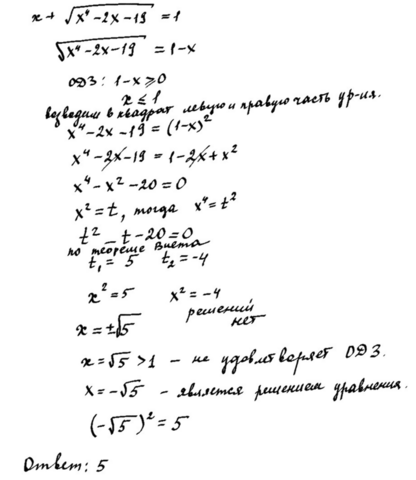 x + √(x⁴-2x-19) = 1
√(x⁴-2x-19) = 1-x
ОДЗ: 1-x ≥ 0
x ≤ 1
возводим в квадрат левую и правую часть ур-ия.
x⁴-2x-19 = (1-x)²
x⁴-2x-19 = 1-2x+x²
x⁴-x²-20=0
x² = t, тогда x⁴=t²
t²-t-20=0
по теореме Виета
t₁ = 5 t₂ = -4
x² = 5 x² = -4
решений
нет
x = ±√5
x = √5 > 1 - не удовлетворяет ОДЗ.
x = -√5 - является решением уравнения.
(-√5)² = 5
Ответ: 5